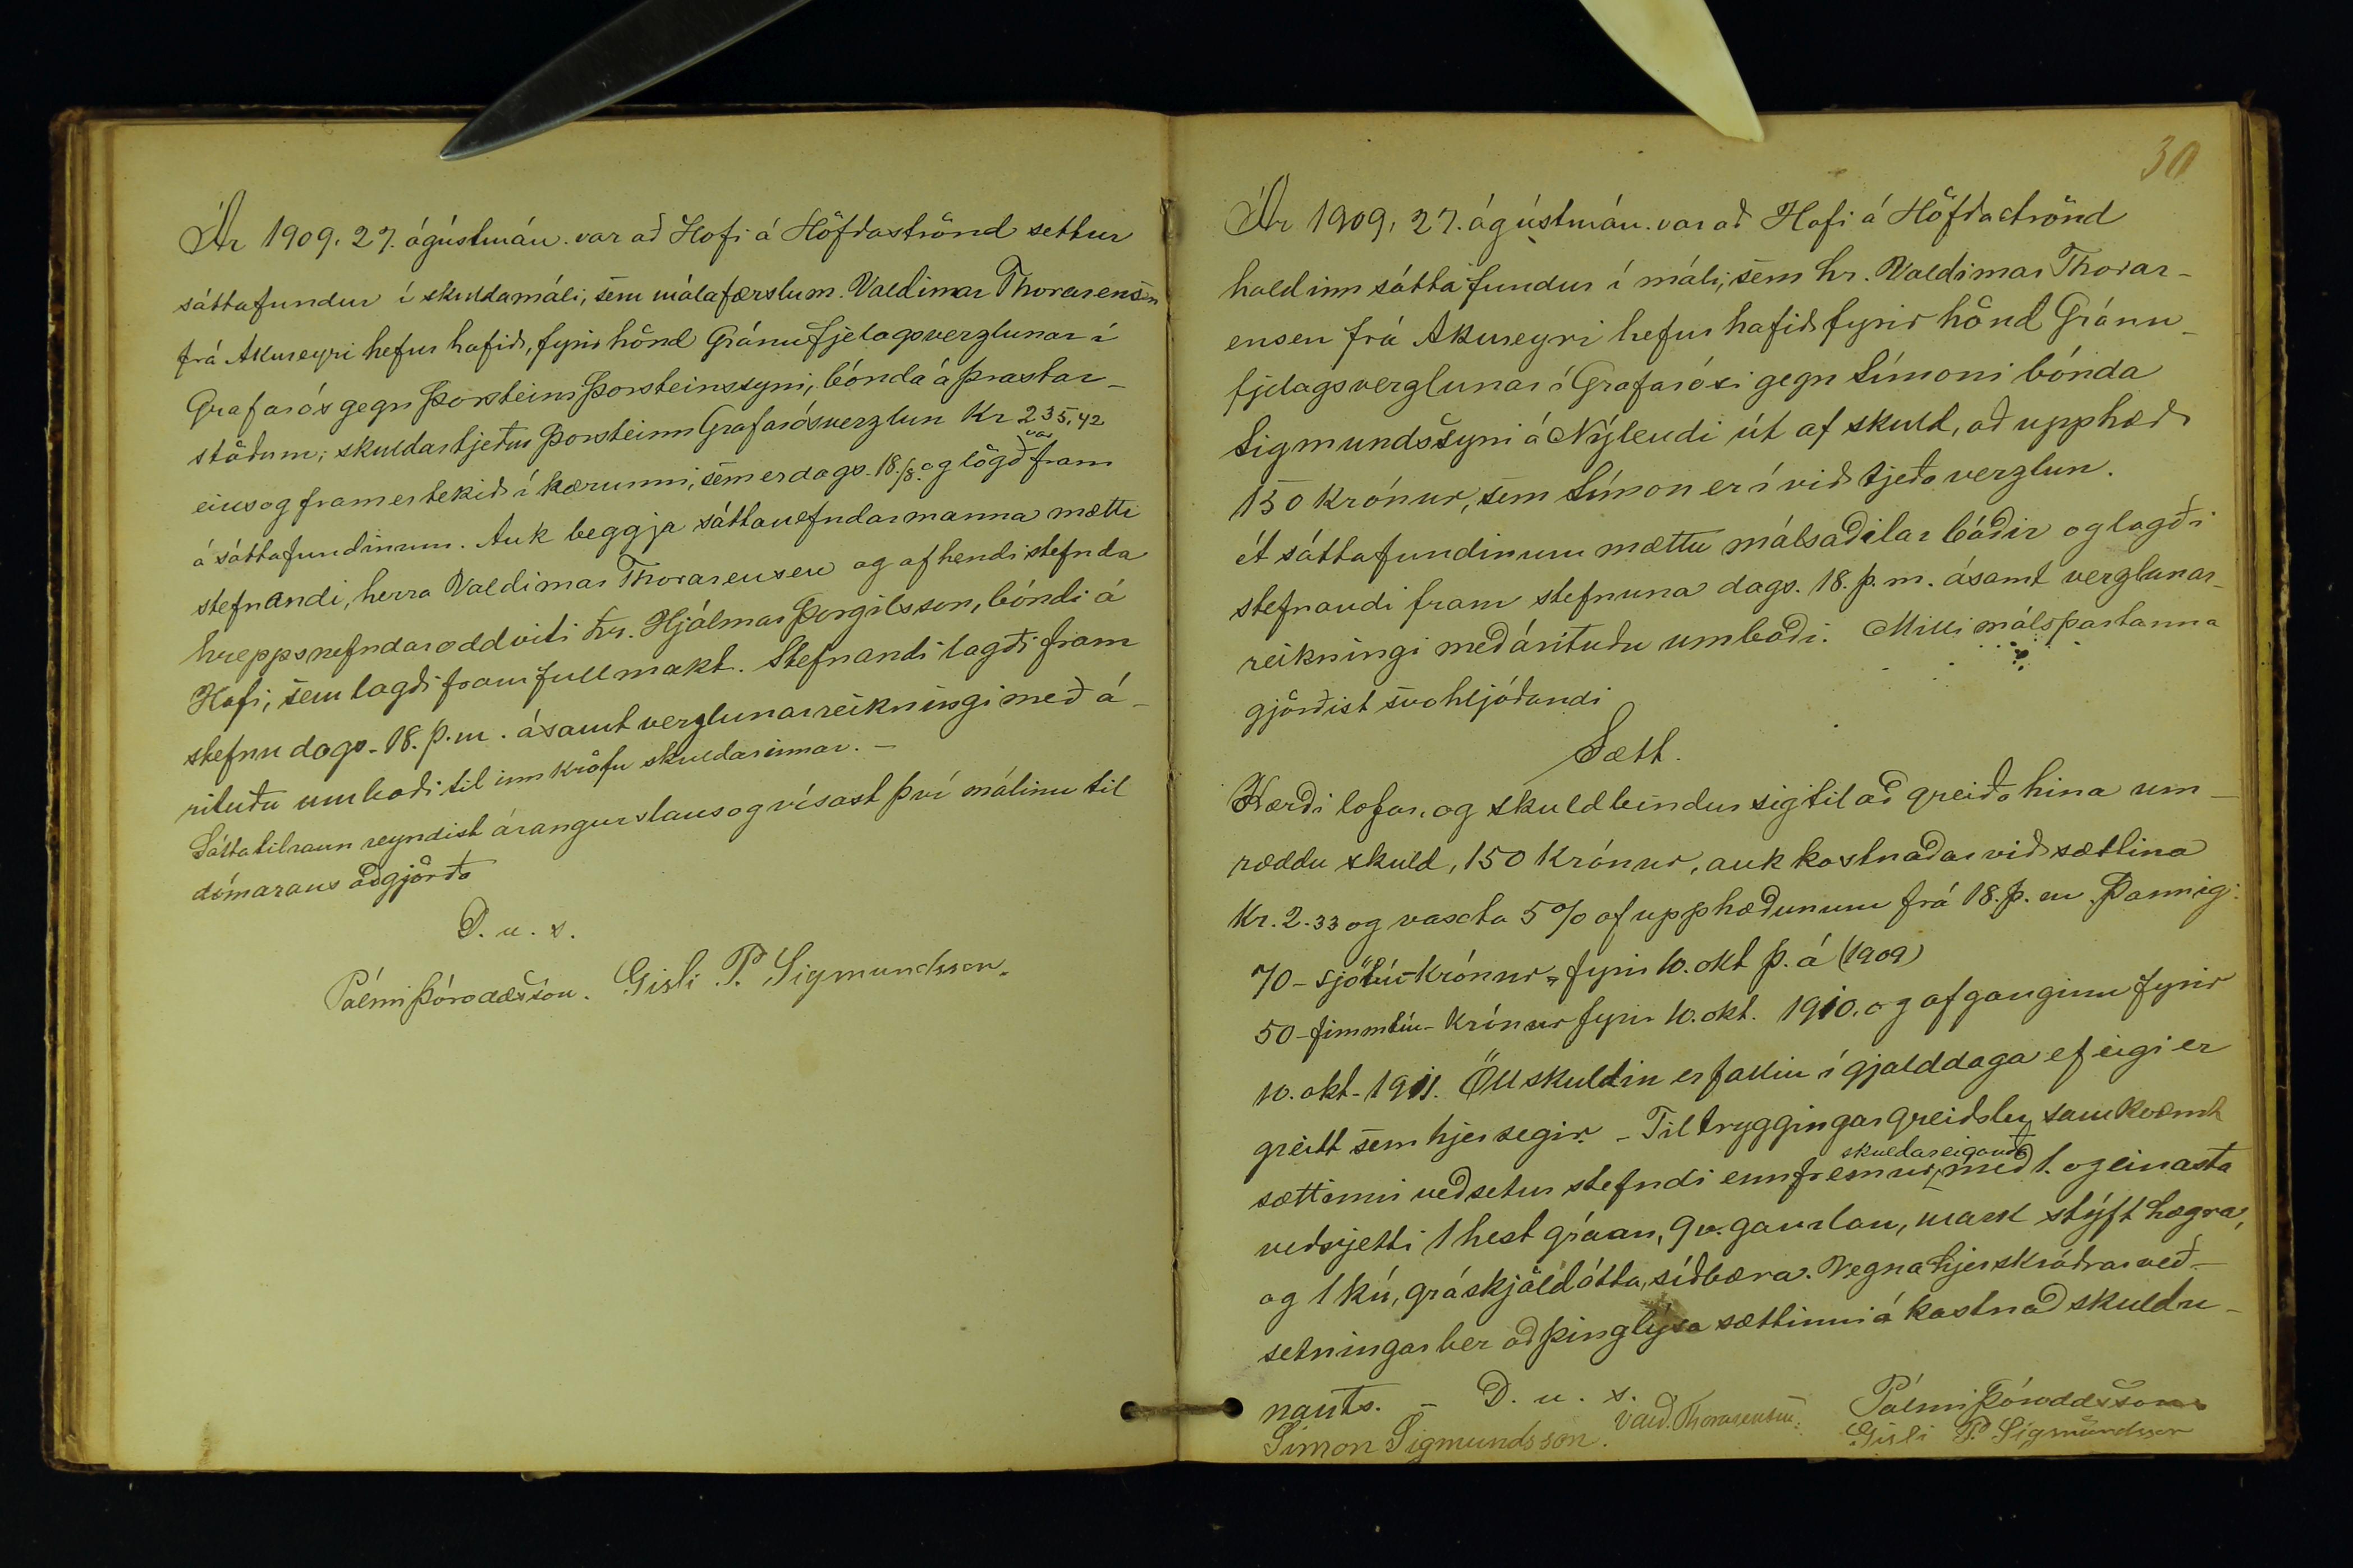 Ár 1909, 27. ágústmán. var að Hofi á Höfðaströnd settur
sáttafundur í skuldamáli, sem málafærslum. Valdimar Thorarensen
frá Akureyri hefur hafið, fyrir hönd Gránufjelagsverzlunar í
Grafarós gegn Þorsteini Þorsteinssyni, bónda á Þrastar-
stöðum; skuldar tjeður Þorsteinn Grafarósverzlun Kr 235,42
eins og fram er tekið í kærunni, sem er dags. 18./8. og var lögð fram
á sáttafundinum. Auk beggja sáttanefndarmanna mætti
stefnandi, herra Valdimar Thorarensen og af hendi stefnda
hreppsnefndaroddviti hr. Hjálmar Þorgilsson, bóndi á
Hofi, sem lagði fram fullmakt. Stefnandi lagði fram
stefnu dags. 18. þ.m. ásamt verzlunarreikningi með á-
rituðu umboði til innkröfu skuldarinnar. –
Sáttatilraun reyndist árangurslaus og vísast því málinu til
dómarans aðgjörða
D. u. s.
Pálmi Þóroddsson. Gísli P. Sigmundsson.
30
Ár 1909, 27. ágústmán. var að Hofi á Höfðaströnd
haldinn sáttafundur í máli, sem hr. Valdimar Thorar-
ensen frá Akureyri hefur hafið fyrir hönd Gránu-
fjelagsverzlunar í Grafarósi gegn Símoni bónda
Sigmundssyni á Nýlendi út af skuld, að upphæð
150 krónur, sem Símon er í við tjeða verzlun.
Át sáttafundinum mættu málsaðilar báðir og lagði
stefnandi fram stefnuna dags. 18. þ. m. ásamt verzlunar-
reikningi með árituðu umboði. Milli málspartanna
gjörðist svohljóðandi
Sætt.
Kærði lofar og skuldbindur sig til að greiða hina um-
ræddu skuld, 150 Krónur, auk kostnaðar við sættina
Kr. 2.33 og vaxta 5% af upphæðunum frá 18. þ. m. Þannig:
70 - sjötíu - Krónur fyrir 10. okt þ. á (1909)
50 - fimmtíu - Krónur fyrir 10. okt. 1910. og afganginn fyrir
10. okt. 1911. Öll skuldin er fallin í gjalddaga ef eigi er
greitt sem hjer segir. - Til tryggingar greiðslu samkvæmt
sættinni veðsetur stefndi ennfremur skuldareiganda með 1. og einasta
veðrjetti 1 hest gráan, 9 v. gamlan, mark stýft hægra,
og 1 kú, gráskjöldótta, síðbæra. Vegna hjer skráðrar veð-
setningar ber að þinglýsa sættinni á kostnað skuldu-
nauts. - D. u. s.
Pálmi Þóroddsson
Símon Sigmundsson. Vald. Thorarensen. Gísli P. Sigmundsson